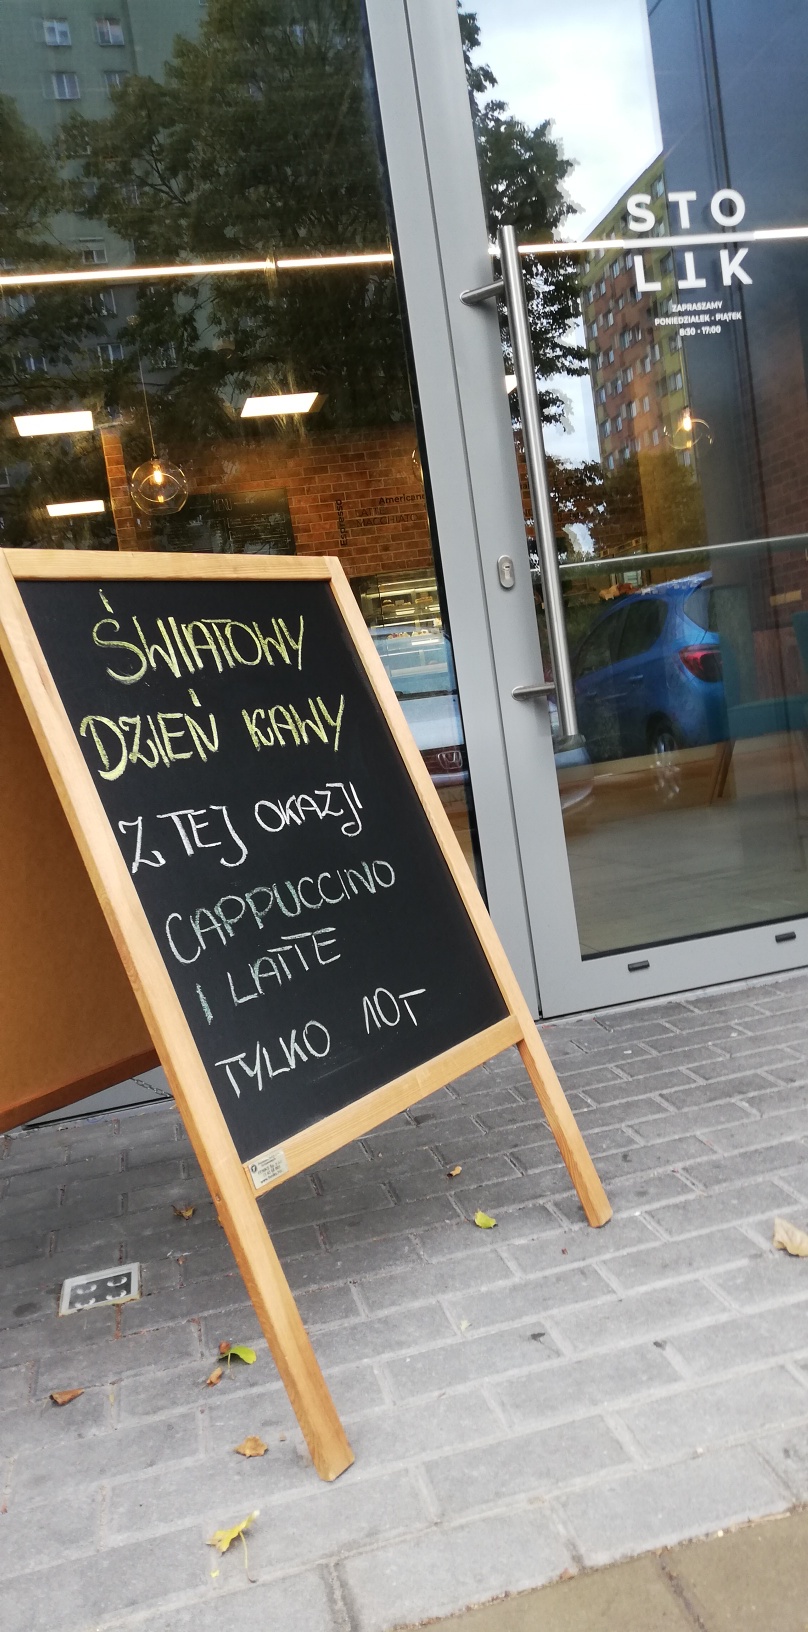 STO
LIK
ZAPRASZAMY
PONIEDZIAŁEK - PIĄTEK
8:30 - 17:00
Espresso
Americano
MACCHIATO
ŚWIATOWY
DZIEŃ KAWY
Z TEJ OKAZJI
CAPPUCCINO
I LATTE
TYLKO 10T